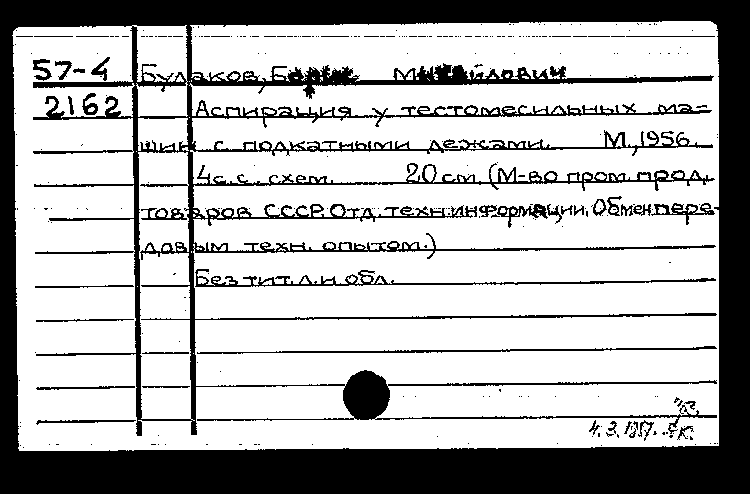 57-4 Булаков, Михайлович
2162 Аспирация у тестомесильных ма=
шин с подкатными дежами. М., 1956.
4с. с. схем. 20 см. (М-во пром. прод.
товаров СССР. Отд. техн. информации. Обмен пере-
довым техн. опытом.)
Без тит. л. и обл.
4.3.1957.